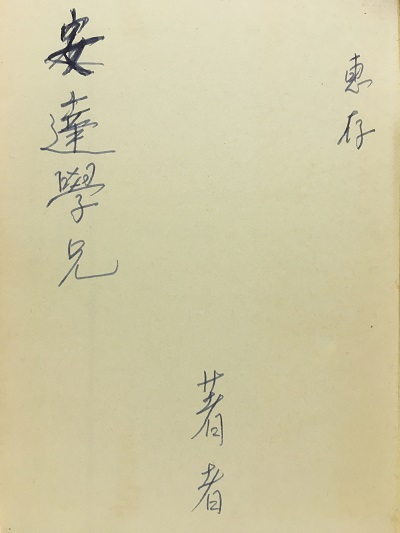 安達學兄
惠存
著者